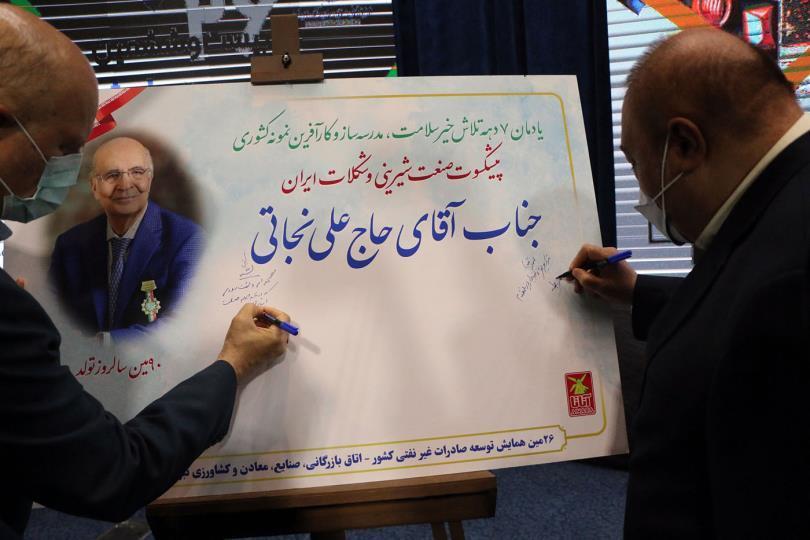 یادمان ۷ دهه تلاش خیر سلامت، مدرسه ساز و کارآفرین نمونه کشوری
پیشکسوت صنعت شیرینی و شکلات ایران
جناب آقای حاج علی نجاتی
۹۰مین سالروز تولد
آناتا
۲۶مین همایش توسعه صادرات غیر نفتی کشور - اتاق بازرگانی، صنایع، معادن و کشاورزی